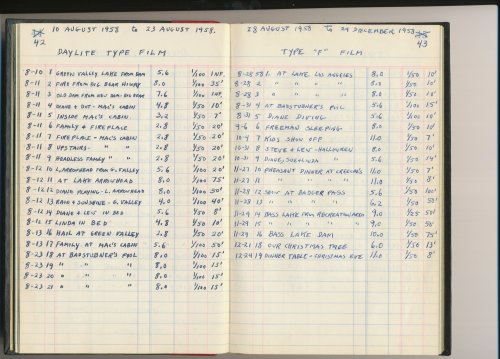 10 AUGUST 1958 to 23 AUGUST 1958.
42
DAYLITE TYPE FILM
8-10 1 GREEN VALLEY LAKE FROM DAM 5.6 1/100 INF.
8-11 2 FIRE FROM BIG BEAR HIWAY 8.0 1/100 35'
8-11 3 OLD DAM FROM NEW DAM - BIG BEAR 7.6 1/100 INF
8-11 4 DIANE + DOT - MAC'S CABIN 4.8 1/50 10'
8-11 5 INSIDE MAC'S CABIN 3.2 1/50 7'
8-11 6 FAMILY + FIREPLACE 2.8 1/50 20'
8-11 7 FIREPLACE - MAC'S CABIN 2.8 1/50 20'
8-11 8 UPSTAIRS - " " 2.8 1/50 20'
8-11 9 HEADLESS FAMILY " " 2.8 1/50 20'
8-12 10 L. ARROWHEAD FROM G. VALLEY 5.6 1/100 20'
8-12 11 AT LAKE ARROWHEAD 8.0 1/100 75'
8-12 12 DIANE PLAYING - L. ARROWHEAD 8.0 1/100 50'
8-12 13 RAIN + SUNSHINE - G. VALLEY 4.0 1/100 40'
8-12 14 DIANE + LEN IN BED 5.6 1/50 8'
8-12 15 LINDA IN BED 4.8 1/50 10'
8-13 16 HAIL AT GREEN VALLEY 2.8 1/50 20'
8-13 17 FAMILY AT MAC'S CABIN 5.6 1/100 50'
8-23 18 AT BADSTUBNER'S POOL 8.0 1/100 15'
8-23 19 " " " 8.0 1/100 15'
8-23 20 " " " 8.0 1/100 15'
8-23 21 " " " 8.0 1/100 15'
28 AUGUST 1958 to 24 DECEMBER 1958
43
TYPE "F" FILM
8-28 58 1. AT LAKE, LOS ANGELES 8.0 1/50 10'
8-28 2 " " " " 8.0 1/50 10'
8-28 3 " " " " 8.0 1/50 10'
8-31 4 AT BADSTUBNER'S POOL 5.6 1/100 15'
8-31 5 DIANE DIVING 5.6 1/100 10'
9-6 6 FREEMAN SLEEPING 8.0 1/50 10'
10-4 7 KIDS SHOW OFF 11.0 1/50 7'
10-31 8 STEVE + LEN - HALLOWEEN 8.0 1/50 10'
10-31 9 DIANE, SUE + LINDA " 5.6 1/50 14'
11-27 10 PHEASANT DINNER AT 11.0 1/50 7'
11-27 11 " " " 11.0 1/50 8'
11-28 12 SNOW AT BADGER PASS 5.6 1/50 100'
11-28 13 " " " " 6.2 1/50 50'
11-29 14 BASS LAKE FROM RECREATION AREA 9.0 1/25 50'
11-29 15 " " " " " 9.0 1/50 50'
11-29 16 BASS LAKE DAM 10.0 1/50 75'
12-21 18 OUR CHRISTMAS TREE 6.0 1/50 13'
12-24 19 DINNER TABLE - CHRISTMAS EVE 11.0 1/50 8'